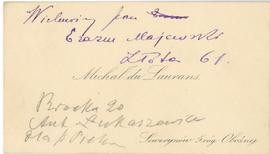 Wielmożny Pan
Erazm Majewski
Złota 61.
Michał du Laurans.
Bracka 20
Ant. Łukaszewski
Sewerynów - Gróg. Oboźnej